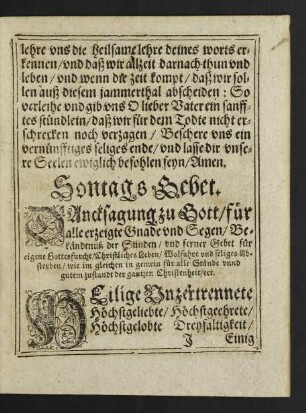 lehre vns die heilsame lehre deines worts er-
kennen/ vnd daß wir allzeit darnach thun vnd
leben/ vnd wenn die zeit kompt/ daß wir sol-
len auß diesem jammerthal abscheiden: So
verleihe vnd gib vns O lieber Vater ein sanff-
tes stündlein/ daß wir für dem Todte nicht er-
schrecken noch verzagen/ Beschere vns ein
vernünfftiges seliges ende/ vnd lasse dir vnse-
re Seelen ewiglich befohlen seyn/ Amen.
Sontags Gebet.
DAncksagung zu Gott/ für
alle erzeigte Gnade vnd Segen/ Be-
kändnuß der Sünden/ vnd ferner Gebet für
eigene Gottesfurcht/ Christliches Leben/ Wolfahrt vnd seliges Ab-
sterben/ wie im gleichen in gemein für alle Stände vnnd
guten zustandt der gantzen Christenheit/ etc.
HEilige Vnzertrennete
Höchstgeliebte/ Höchstgeehrete/
Höchstgelobte Dreyfaltigkeit/
J Einig